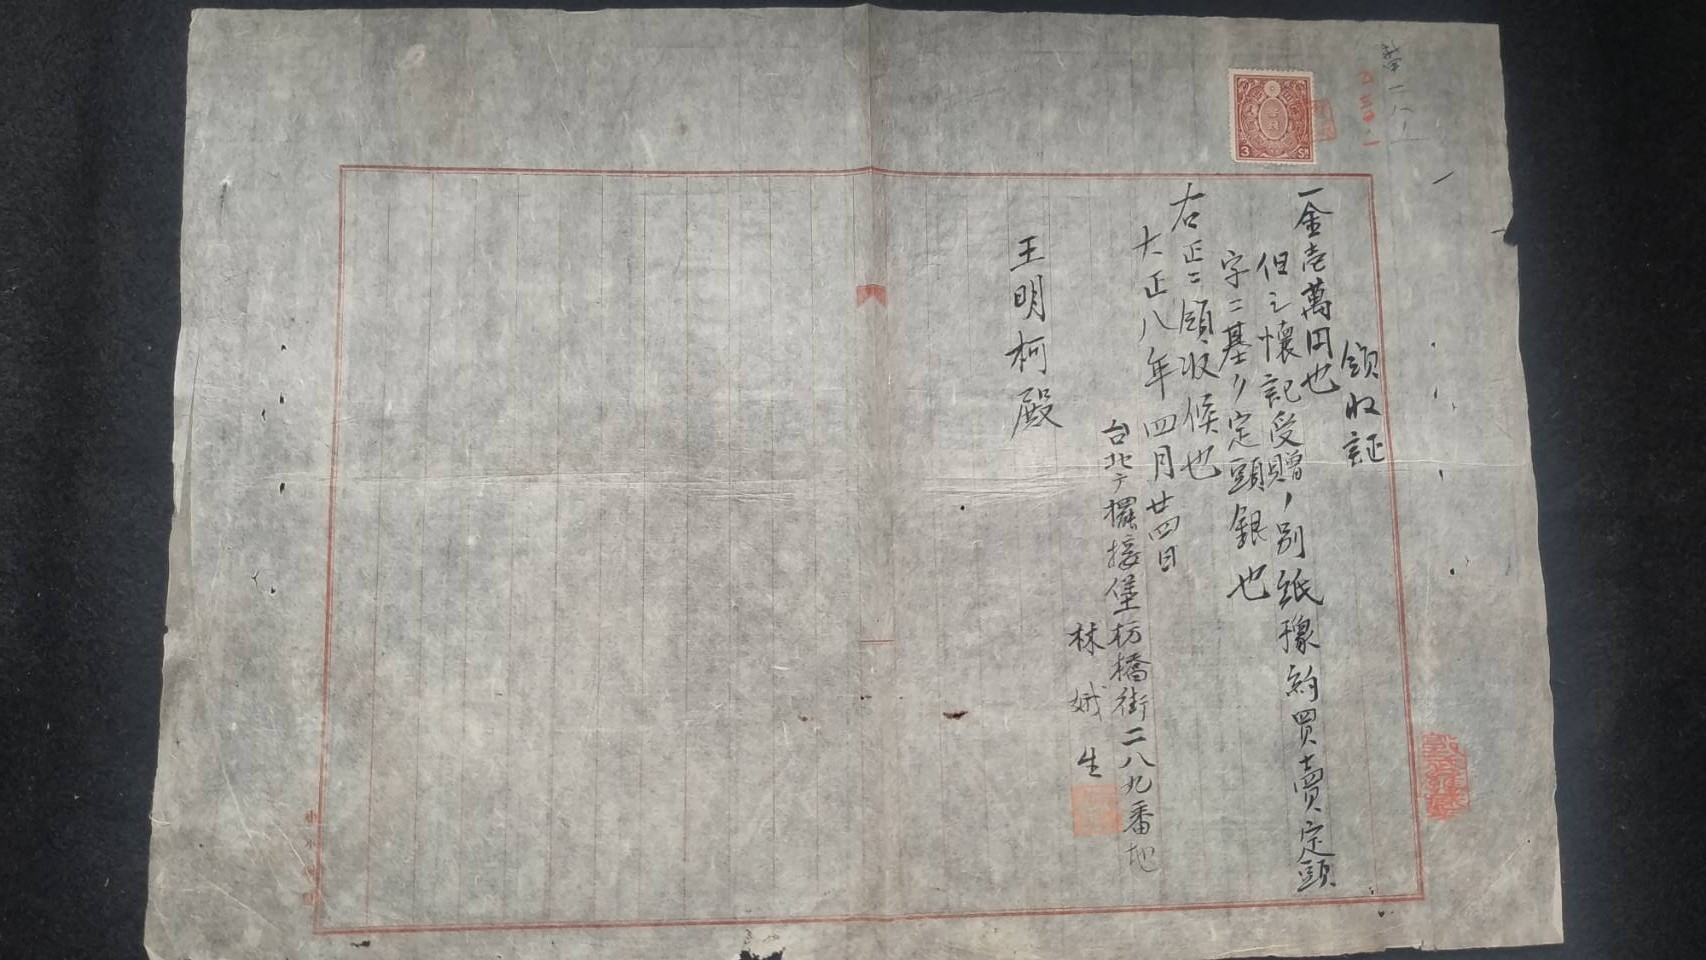 領收証
一金壱萬円也
但之懐記受贈ノ別紙豫約買賣定頭
字ニ基ク定頭銀也
右正ニ領收候也
大正八年四月廿四日
台北庁擺接堡枋橋街二八九番地
林娥生
王明柯殿
3 Sn